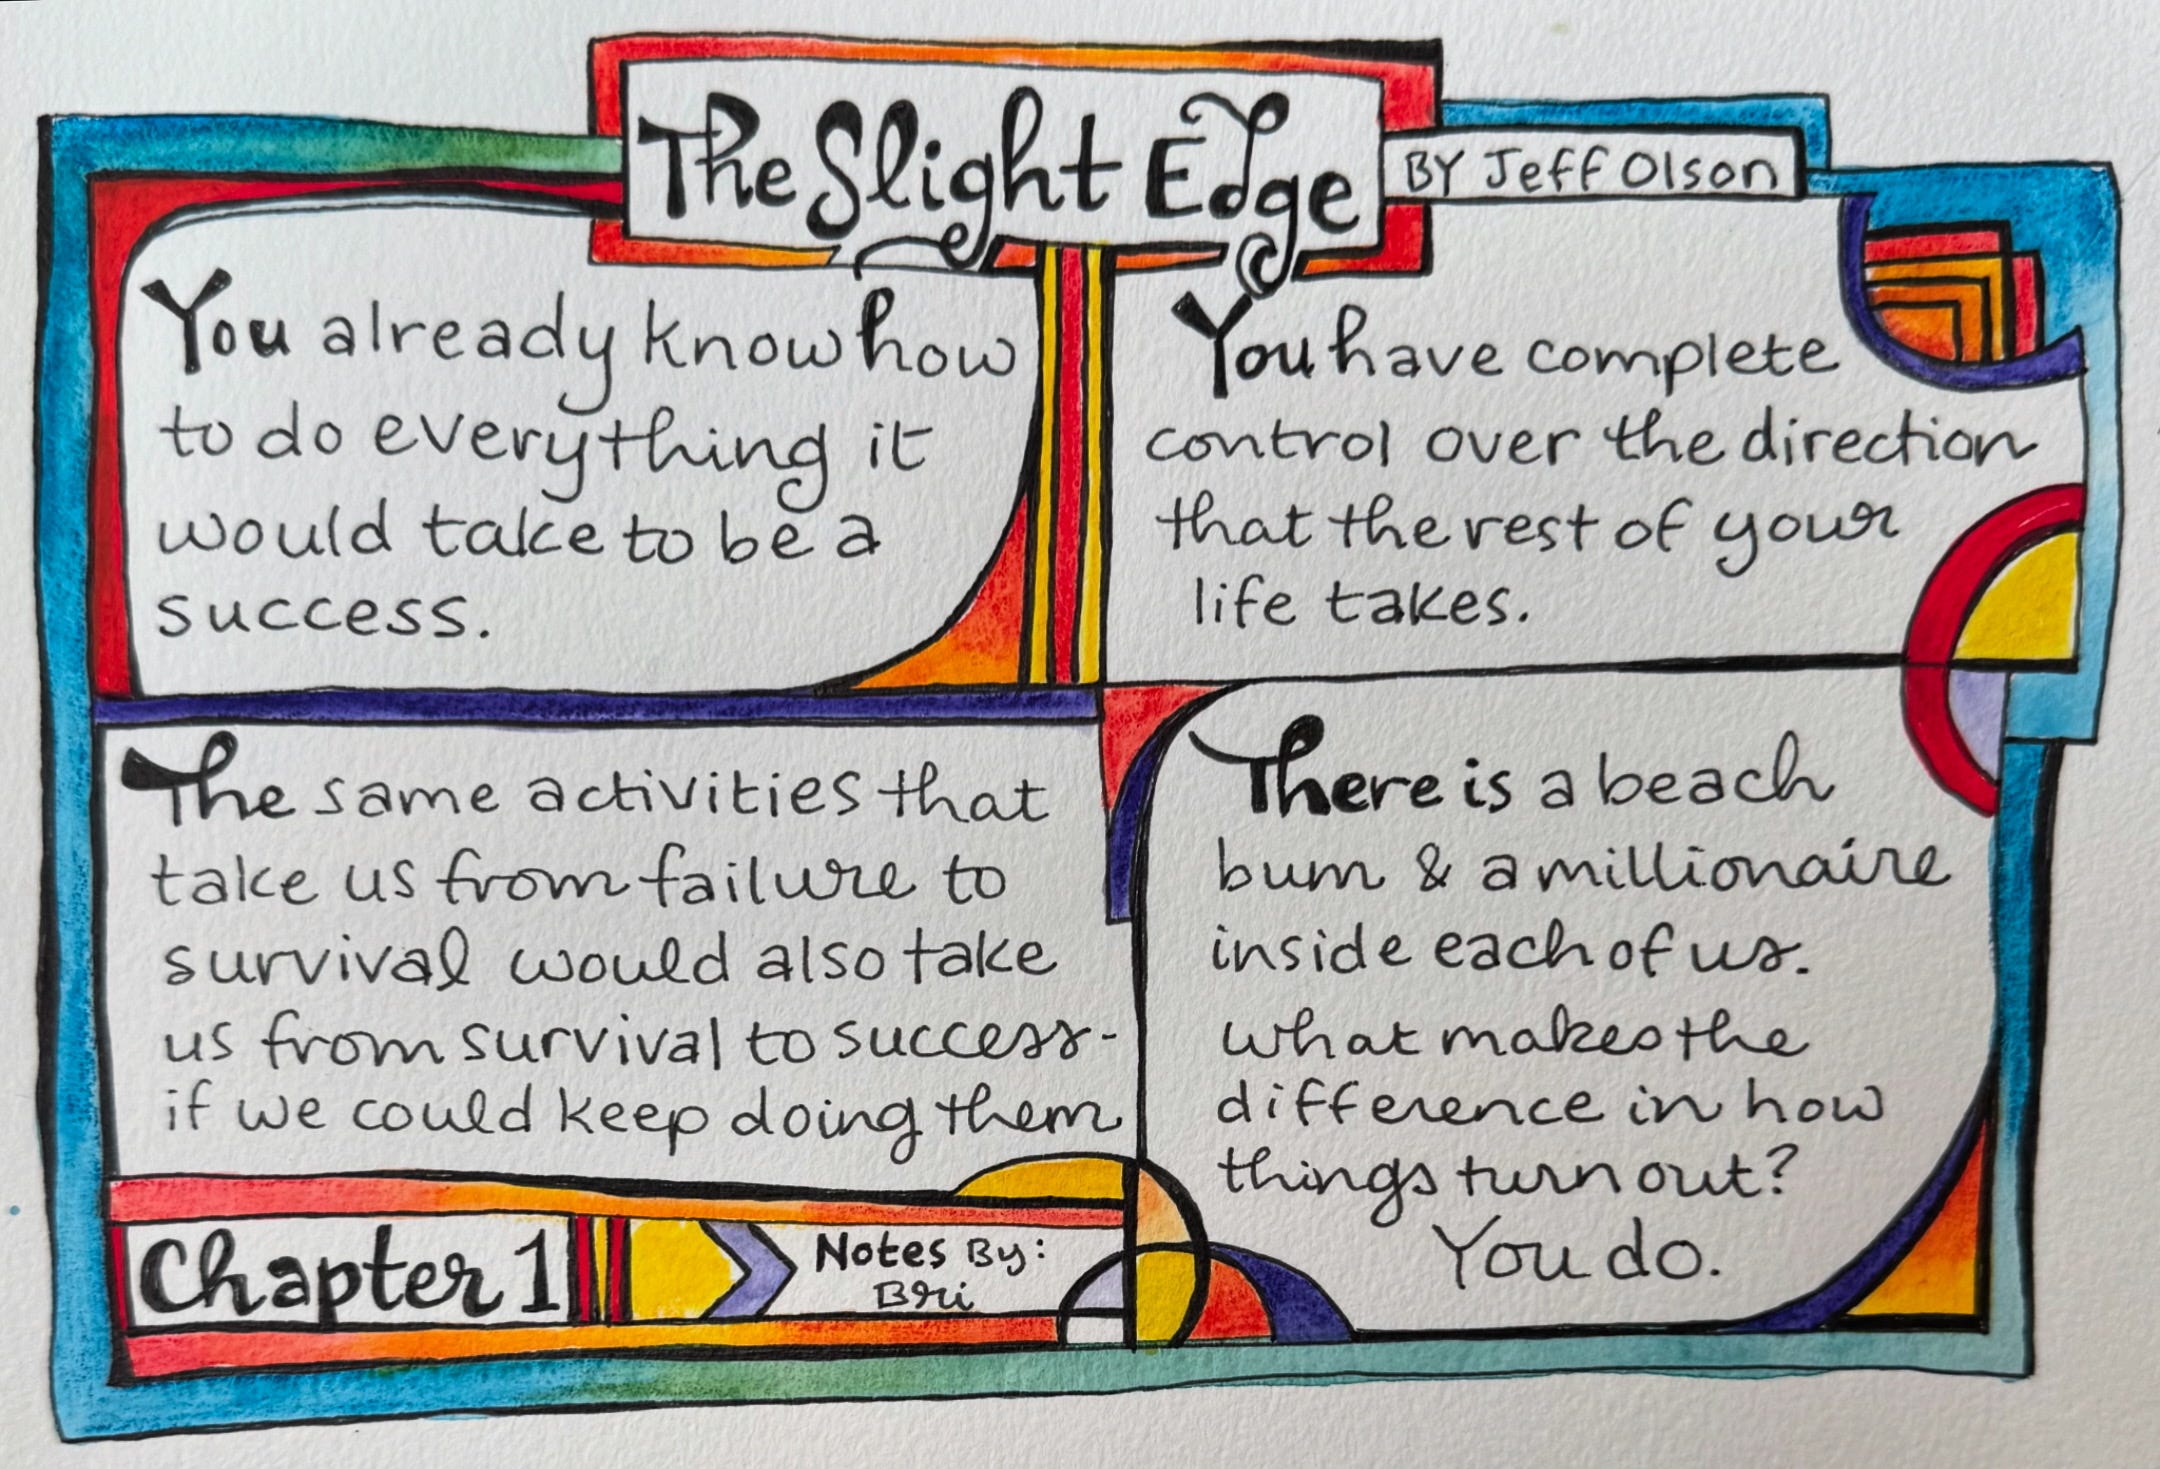 The Slight Edge
BY Jeff Olson
You already know how
to do everything it
would take to be a
success.
You have complete
control over the direction
that the rest of your
life takes.
The same activities that
take us from failure to
survival would also take
us from survival to success-
if we could keep doing them
There is a beach
bum & a millionaire
inside each of us.
What makes the
difference in how
things turn out?
You do.
Chapter 1
Notes By:
Bri